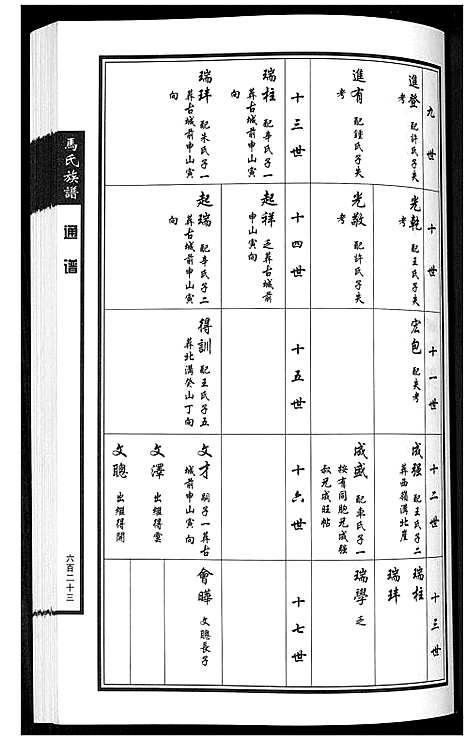 九世
進登 配許氏子失
考
進有 配鍾氏子失
考
十世
光乾 配王氏子失
考
光敬 配許氏子失
考
十一世
宏包 配失考
十二世
成强 配王氏子二
葬西嶺溝北崖
成盛 配車氏子一
按有同胞兄成强
叔兄成旺帖
十三世
瑞柱
瑞玤
瑞學 乏
十三世
瑞柱 配辛氏子一
葬古城前申山寅
向
瑞玤 配朱氏子一
葬古城前申山寅
向
十四世
起祥 乏葬古城前
申山寅向
起瑞 配辛氏子二
葬古城前申山寅
向
十五世
得訓 配王氏子五
葬北溝癸山丁向
十六世
文才 嗣子一葬古
城前申山寅向
文澤 出繼得雲
文聰 出繼得開
十七世
會曄 文聰長子
馬氏族譜
通谱
六百二十三